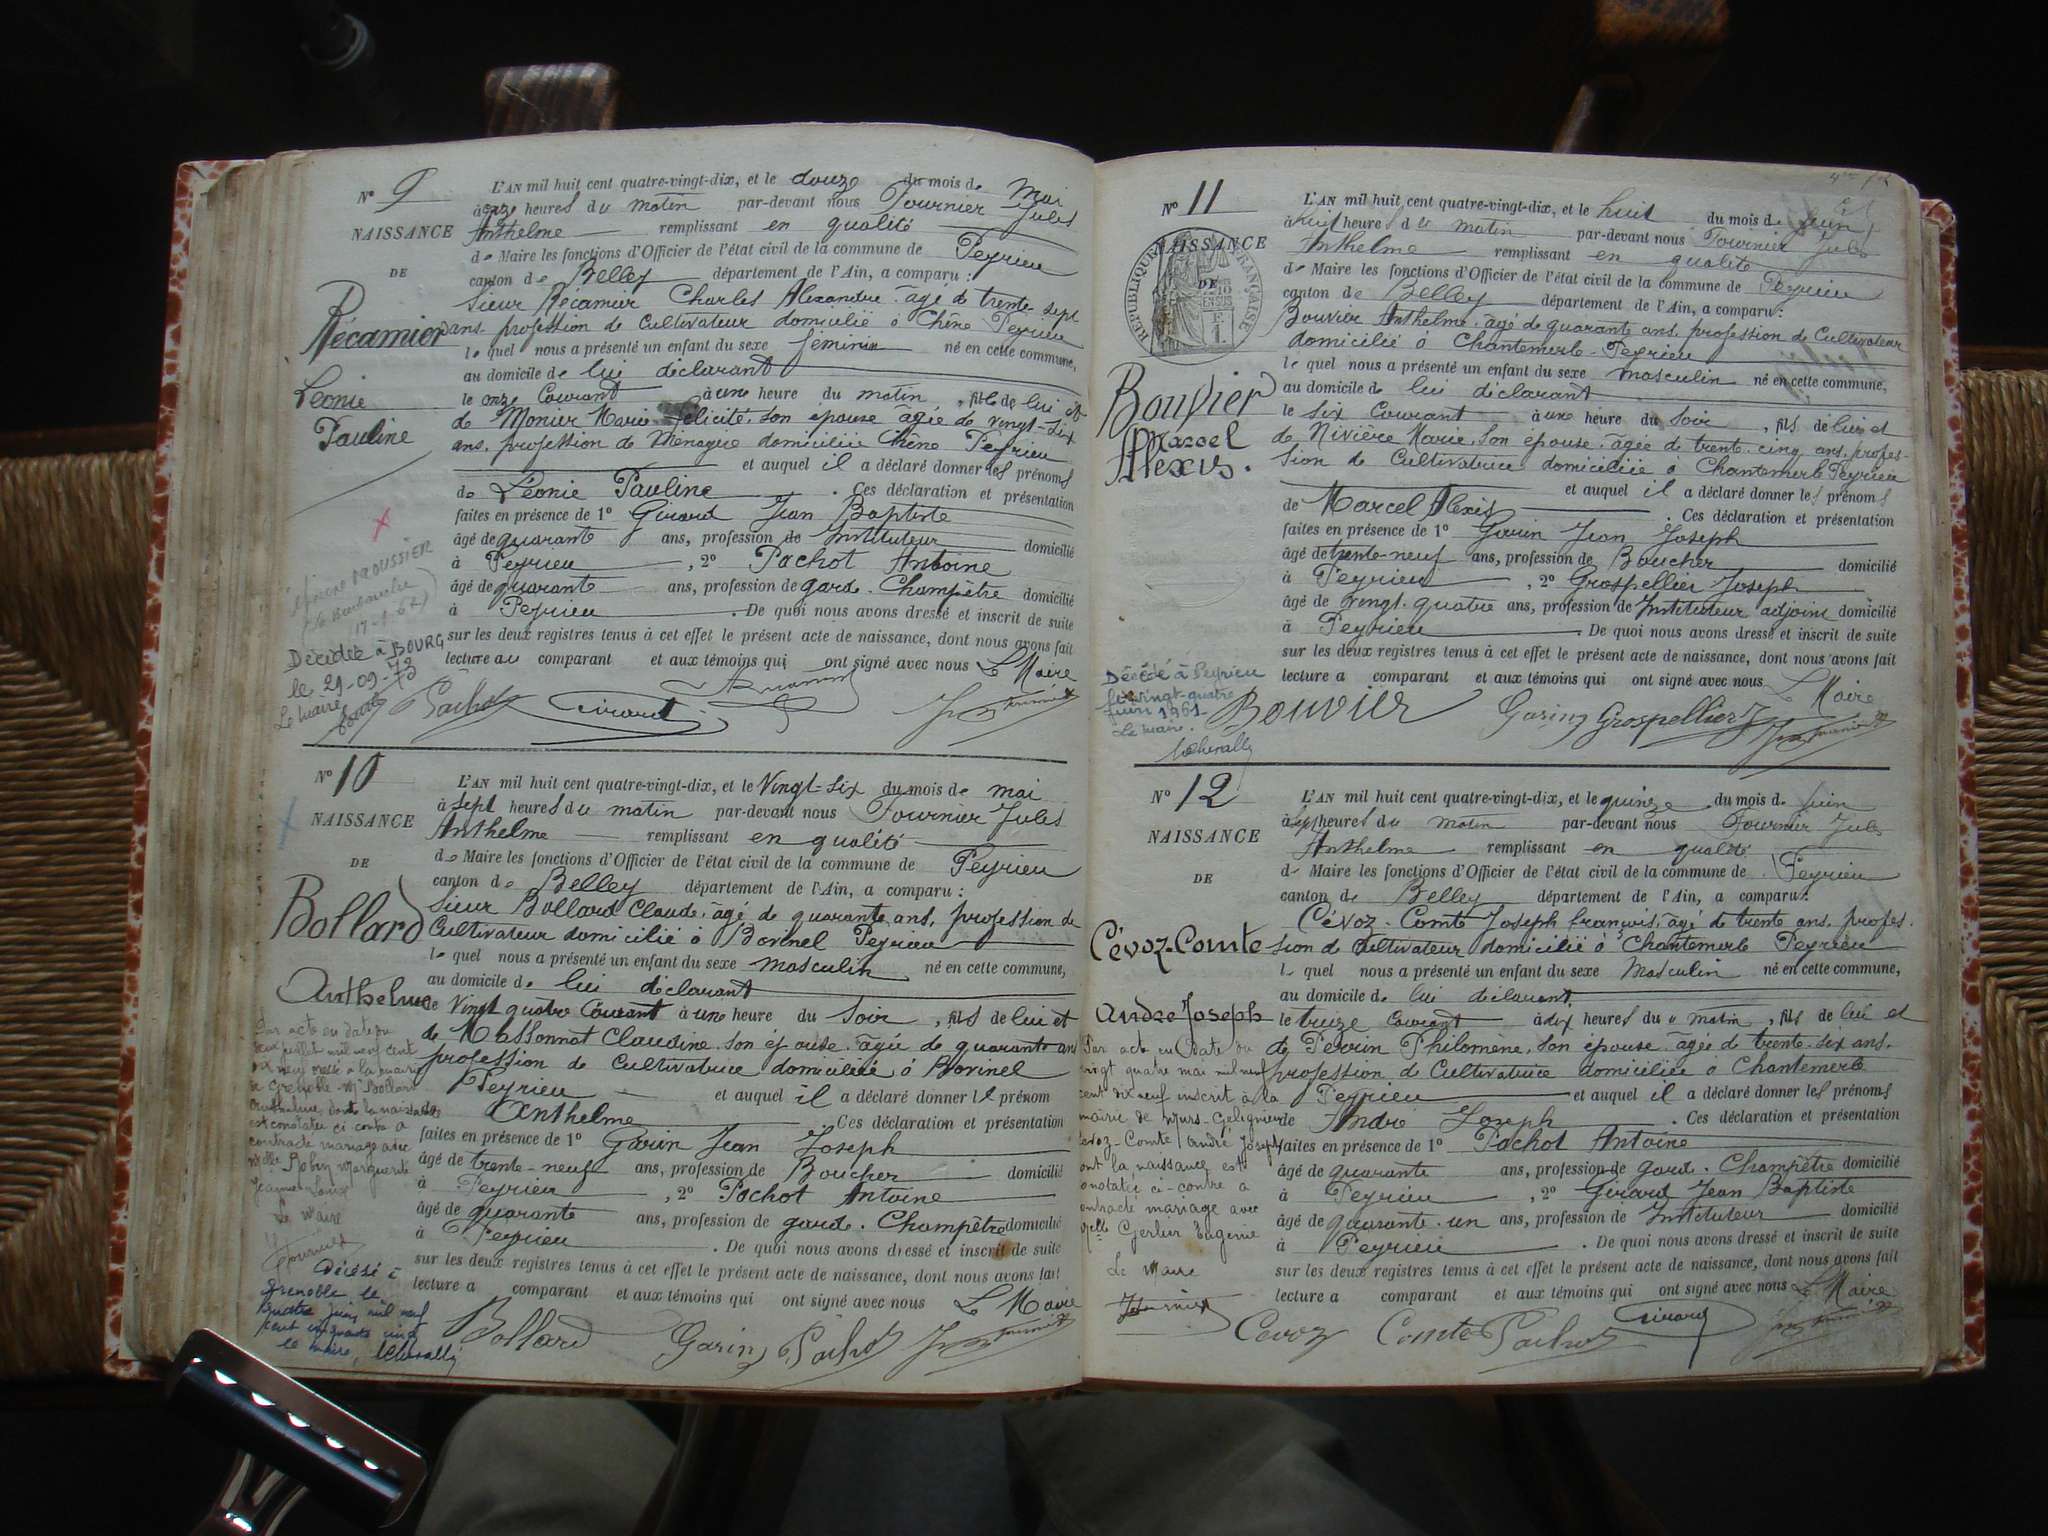 N° 9
NAISSANCE
DE
Récamier
Léonie
Pauline
L'AN mil huit cent quatre-vingt-dix, et le douze du mois de Mai
à onze heures du matin par-devant nous Fournier Jules
Anthelme remplissant en qualité
de Maire les fonctions d'Officier de l'état civil de la commune de Peyrieu
canton de Belley département de l'Ain, a comparu :
Sieur Récamier Charles Alexandre âgé de trente sept
ans, profession de Cultivateur domicilié à Chêne Peyrieu
lequel nous a présenté un enfant du sexe féminin né en cette commune,
au domicile de lui déclarant
le onze Courant à une heure du matin, fille de lui et
de Monier Marie Félicité, son épouse âgée de vingt-six
ans, profession de Ménagère domiciliée Chêne Peyrieu
et auquel il a déclaré donner les prénoms
de Léonie Pauline. Ces déclaration et présentation
faites en présence de 1° Girard Jean Baptiste
âgé de quarante ans, profession de Instituteur domicilié
à Peyrieu, 2° Pochot Antoine
âgé de quarante ans, profession de garde-Champêtre domicilié
à Peyrieu. De quoi nous avons dressé et inscrit de suite
sur les deux registres tenus à cet effet le présent acte de naissance, dont nous avons fait
lecture au comparant et aux témoins qui ont signé avec nous Le Maire
Décédée à BOURG
le 29-09-73
Le maire
Pochot Girard
N° 10
NAISSANCE
DE
Bollard
Anthelme
L'AN mil huit cent quatre-vingt-dix, et le Vingt-six du mois de mai
à sept heures du matin par-devant nous Fournier Jules
Anthelme remplissant en qualité
de Maire les fonctions d'Officier de l'état civil de la commune de Peyrieu
canton de Belley département de l'Ain, a comparu :
Sieur Bollard Claude, âgé de quarante ans, profession de
Cultivateur domicilié à Borinel Peyrieu
lequel nous a présenté un enfant du sexe masculin né en cette commune,
au domicile de lui déclarant
le Vingt quatre Courant à une heure du Soir, fils de lui et
de Massonnat Claudine, son épouse, âgée de quarante ans
profession de Cultivatrice domiciliée à Borinel
Peyrieu et auquel il a déclaré donner le prénom
de Anthelme Ces déclaration et présentation
faites en présence de 1° Garin Jean Joseph
âgé de trente-neuf ans, profession de Boucher domicilié
à Peyrieu, 2° Pochot Antoine
âgé de quarante ans, profession de garde-Champêtre domicilié
à Peyrieu. De quoi nous avons dressé et inscrit de suite
sur les deux registres tenus à cet effet le présent acte de naissance, dont nous avons fait
lecture a comparant et aux témoins qui ont signé avec nous Le Maire
Par acte en date du
juillet mil neuf cent
dix neuf à la mairie
de Grenoble Mr Bollard
Anthelme dont la naissance
est constatée ci contre a
contracté mariage avec
Melle Robin Marguerite
Jeanne
Le Maire
Fournier
Décédé à
Grenoble le
quatre juin mil neuf
cent cinquante cinq
le maire,
Bollard Garin Pochot
N° 11
NAISSANCE
DE
RÉPUBLIQUE FRANÇAISE
Bouvier
Marcel
Alexis.
L'AN mil huit cent quatre-vingt-dix, et le huit du mois de Juin
à huit heures du matin par-devant nous Fournier Jules
Anthelme remplissant en qualité
de Maire les fonctions d'Officier de l'état civil de la commune de Peyrieu
canton de Belley département de l'Ain, a comparu :
Bouvier Anthelme, âgé de quarante ans, profession de Cultivateur
domicilié à Chantemerle-Peyrieu
lequel nous a présenté un enfant du sexe masculin né en cette commune,
au domicile de lui déclarant
le Six Courant à une heure du Soir, fils de lui et
de Nivière Marie, Son épouse, âgée de trente cinq ans, profes-
sion de Cultivatrice domiciliée à Chantemerle Peyrieu
et auquel il a déclaré donner les prénoms
de Marcel Alexis. Ces déclaration et présentation
faites en présence de 1° Garin Jean Joseph
âgé de trente-neuf ans, profession de Boucher domicilié
à Peyrieu, 2° Grospellier Joseph
âgé de vingt-quatre ans, profession de Instituteur adjoint domicilié
à Peyrieu. De quoi nous avons dressé et inscrit de suite
sur les deux registres tenus à cet effet le présent acte de naissance, dont nous avons fait
lecture a comparant et aux témoins qui ont signé avec nous Le Maire
Décédé à Peyrieu
le vingt-quatre
juin 1961
Le maire.
Bouvier Garin Grospellier
N° 12
NAISSANCE
DE
Cévoz-Comte
André Joseph
L'AN mil huit cent quatre-vingt-dix, et le quinze du mois de Juin
à heures du matin par-devant nous Fournier Jules
Anthelme remplissant en qualité
de Maire les fonctions d'Officier de l'état civil de la commune de Peyrieu
canton de Belley département de l'Ain, a comparu :
Cévoz-Comte Joseph François, âgé de trente ans, profes-
sion de Cultivateur domicilié à Chantemerle Peyrieu
lequel nous a présenté un enfant du sexe Masculin né en cette commune,
au domicile de lui déclarant
le treize Courant à dix heures du matin, fils de lui et
de Perrin Philomène, Son épouse âgée de trente-six ans,
profession de Cultivatrice domiciliée à Chantemerle
Peyrieu et auquel il a déclaré donner les prénoms
de André Joseph. Ces déclaration et présentation
faites en présence de 1° Pochot Antoine
âgé de quarante ans, profession de garde-Champêtre domicilié
à Peyrieu, 2° Girard Jean Baptiste
âgé de quarante-un ans, profession de Instituteur domicilié
à Peyrieu. De quoi nous avons dressé et inscrit de suite
sur les deux registres tenus à cet effet le présent acte de naissance, dont nous avons fait
lecture a comparant et aux témoins qui ont signé avec nous Le Maire
Par acte en date du
vingt quatre mai mil neuf
cent dix neuf inscrit à la
mairie de Murs-Gélignieux
Cévoz-Comte André Joseph
dont la naissance est
constatée ci-contre a
contracté mariage avec
Melle Gerlier Eugénie
Le Maire
Fournier
Cevoz Comte Pochot Girard